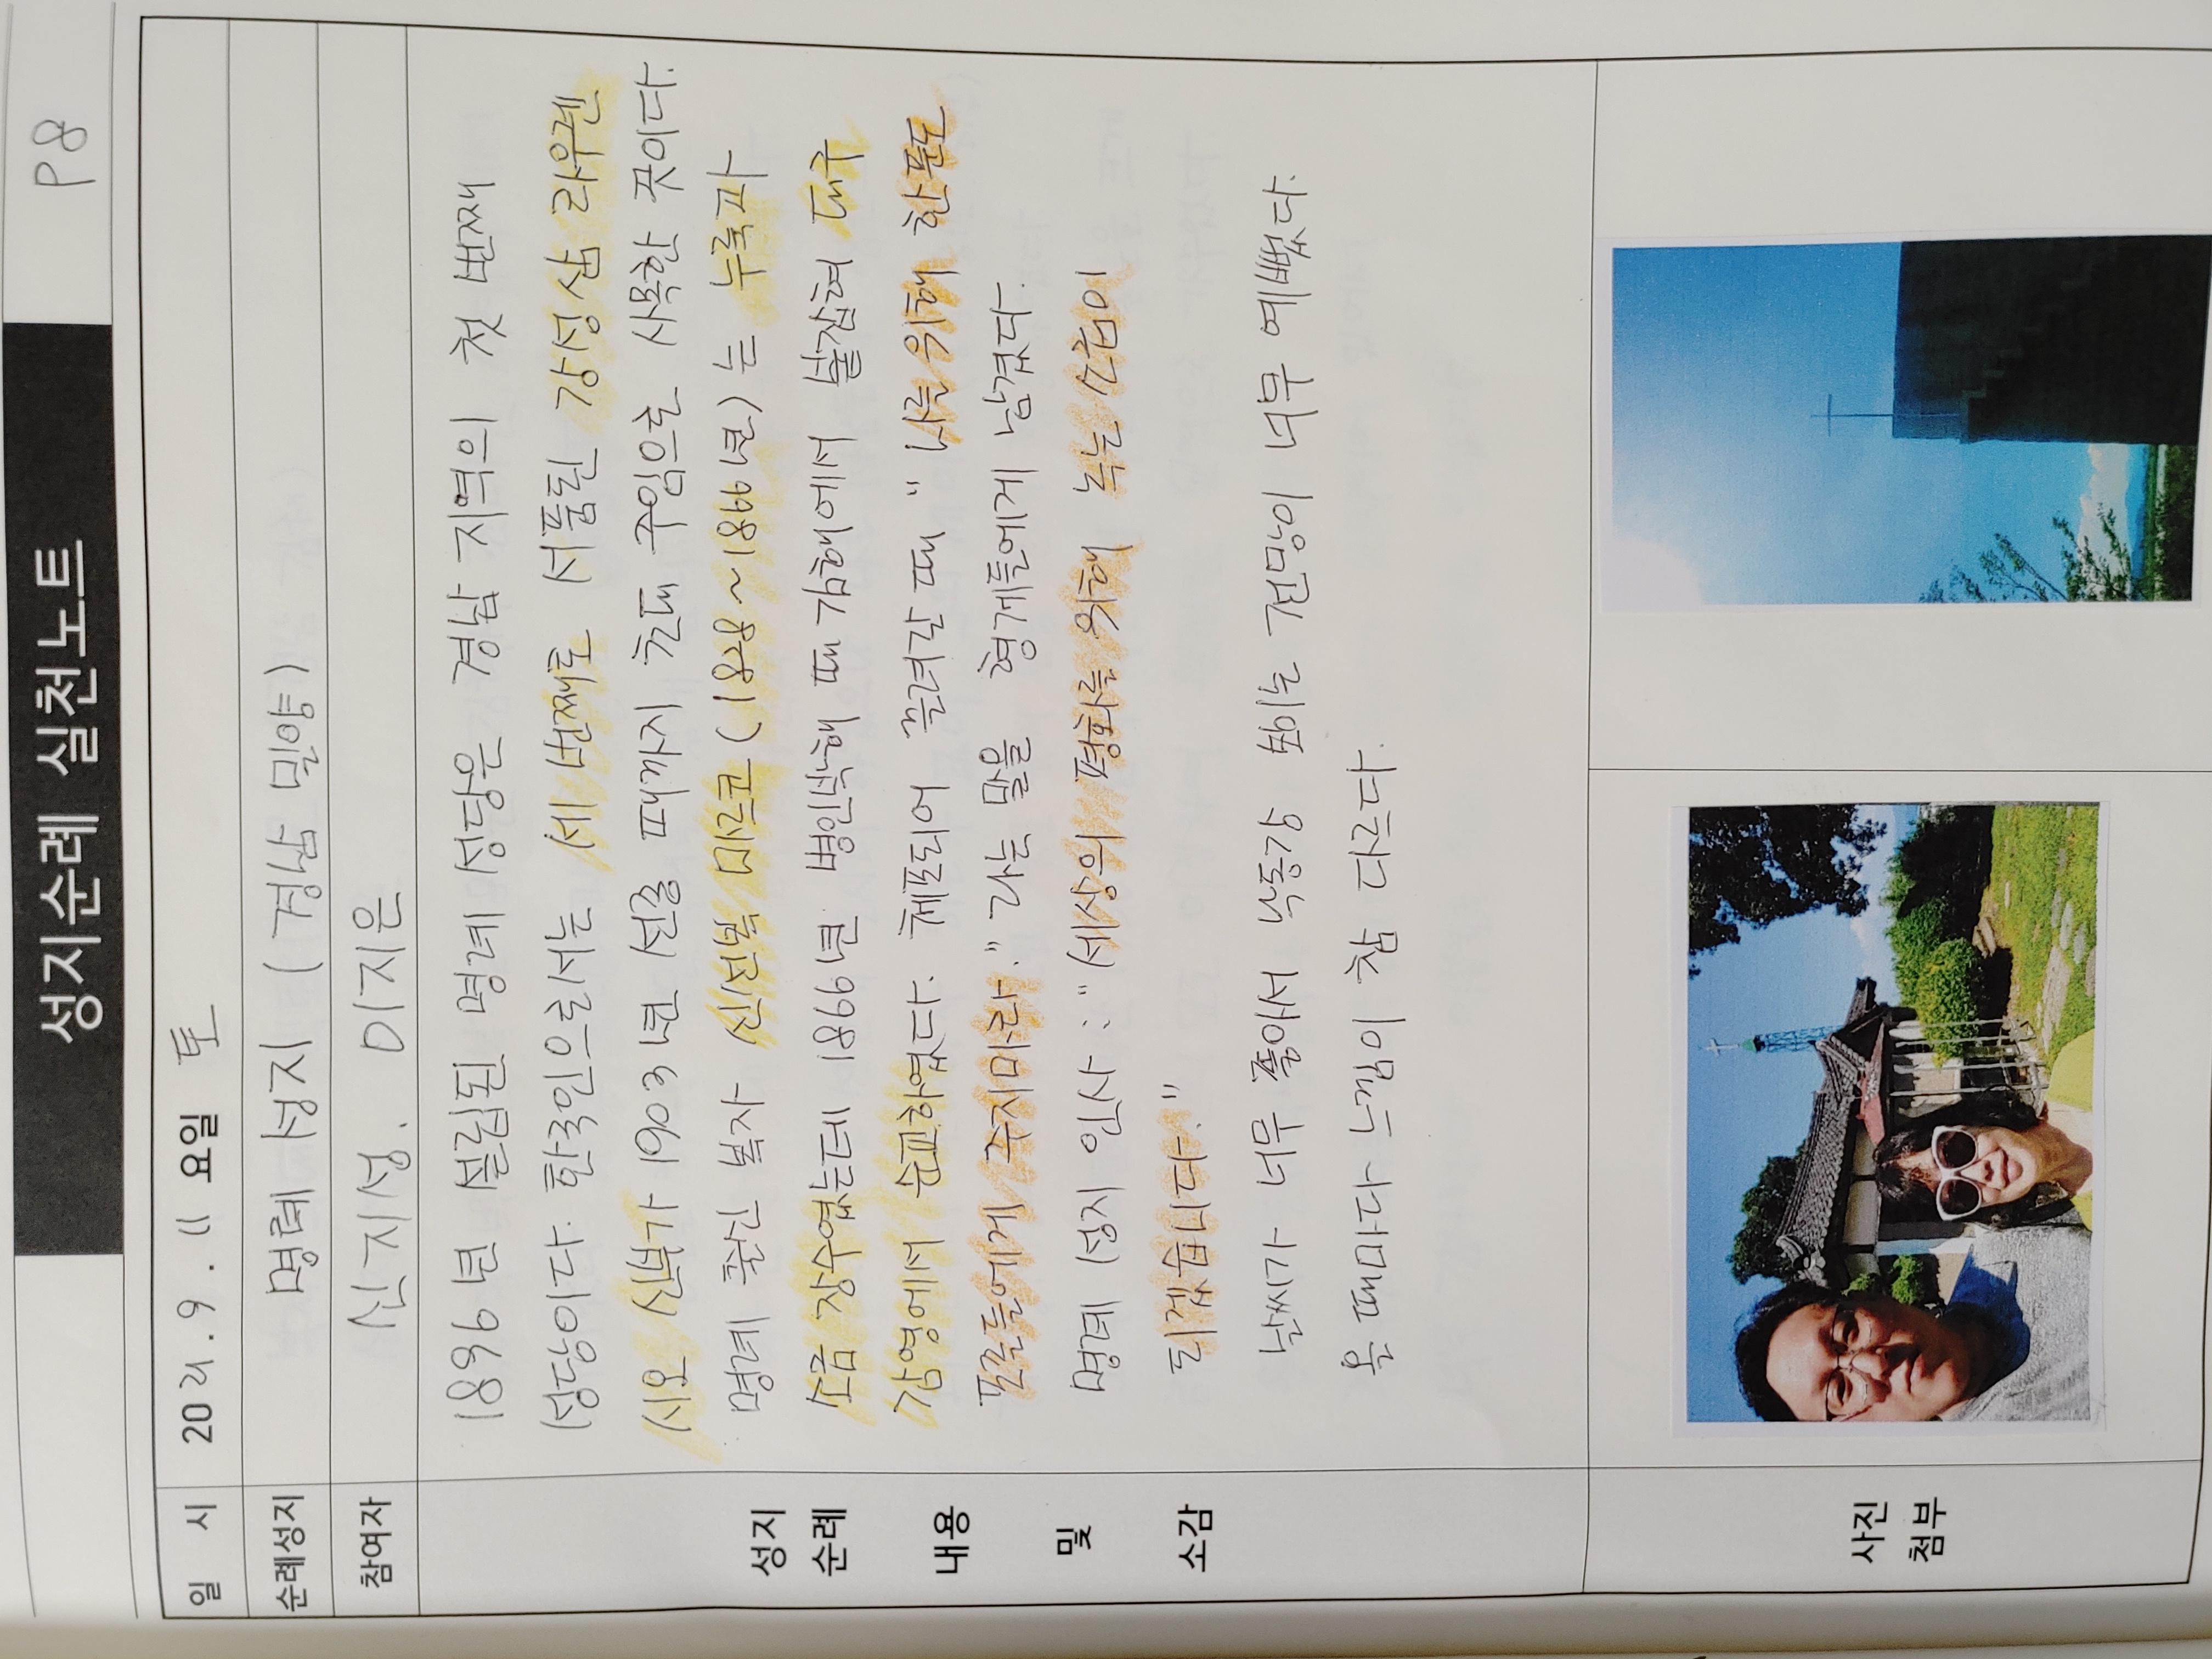 P8
성지순례 실천노트
일 시 2021. 9. 11 요일 토
순례성지 명례 성지 (경남 밀양)
참여자 신지성. 이지은
성지
순례
내용
및
소감
1896년 설립된 명례 성당은 경남 지역의 첫 번째
성당이다. 한국인으로서는 세 번째로 서품된 강성삼 라우렌
시오 신부가 1903년 선종 때까지 초대 주임으로 사목한 곳이다.
명례 출신 복자 신석복 마르코 (1828~1866년)는 누룩과
소금 장수였는데 1866년 병인박해 때 김해에서 붙잡혀 대구
감영에서 순교하였다. 체포되어 끌려갈 때 "나를 위해 한푼도
포졸들에게 주지마라." 라는 말을 형제들에게 남겼다.
명례 성지 인사 : "세상의 평화를 위해 녹는 소금이
되겠습니다."
날씨가 너무 좋아서 낙동강 뵈는 전망이 너무 예뻤다.
올 때마다 느낌이 참 다르다.
사진
첨부